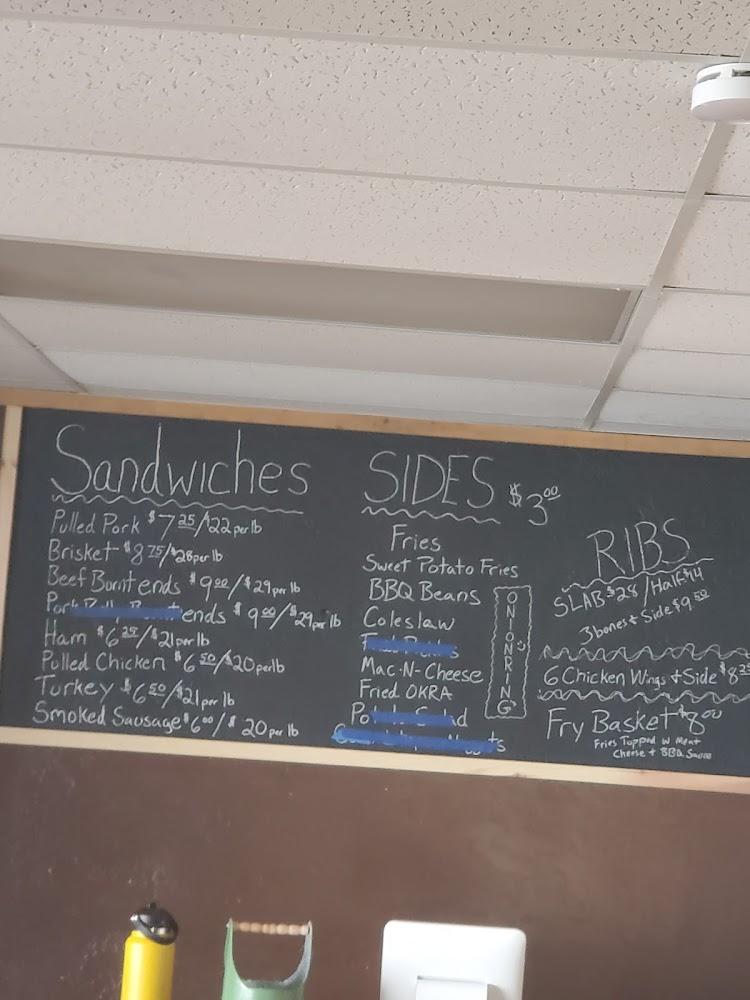 Sandwiches
Pulled Pork $7 25/$22 per lb
Brisket $8 75/$28 per lb
Beef Bornt ends $9 00/$29 per lb
ends $9 00/$29 per lb
Ham $6 25/$21 per lb
Pulled Chicken $6 50/$20 per lb
Turkey $6 50/$21 per lb
Smoked Sausage $6 00/$20 per lb
SIDES $3 00
Fries
Sweet Potato Fries
BBQ Beans
Coleslaw
Mac-N-Cheese
Fried OKRA
ONIONRING
RIBS
SLAB $28/Half $14
3 bones + Side $9 50
6 Chicken Wings + Side
Fry Basket $8 00
Fries Topped w Meat
Cheese + BBQ Sauce